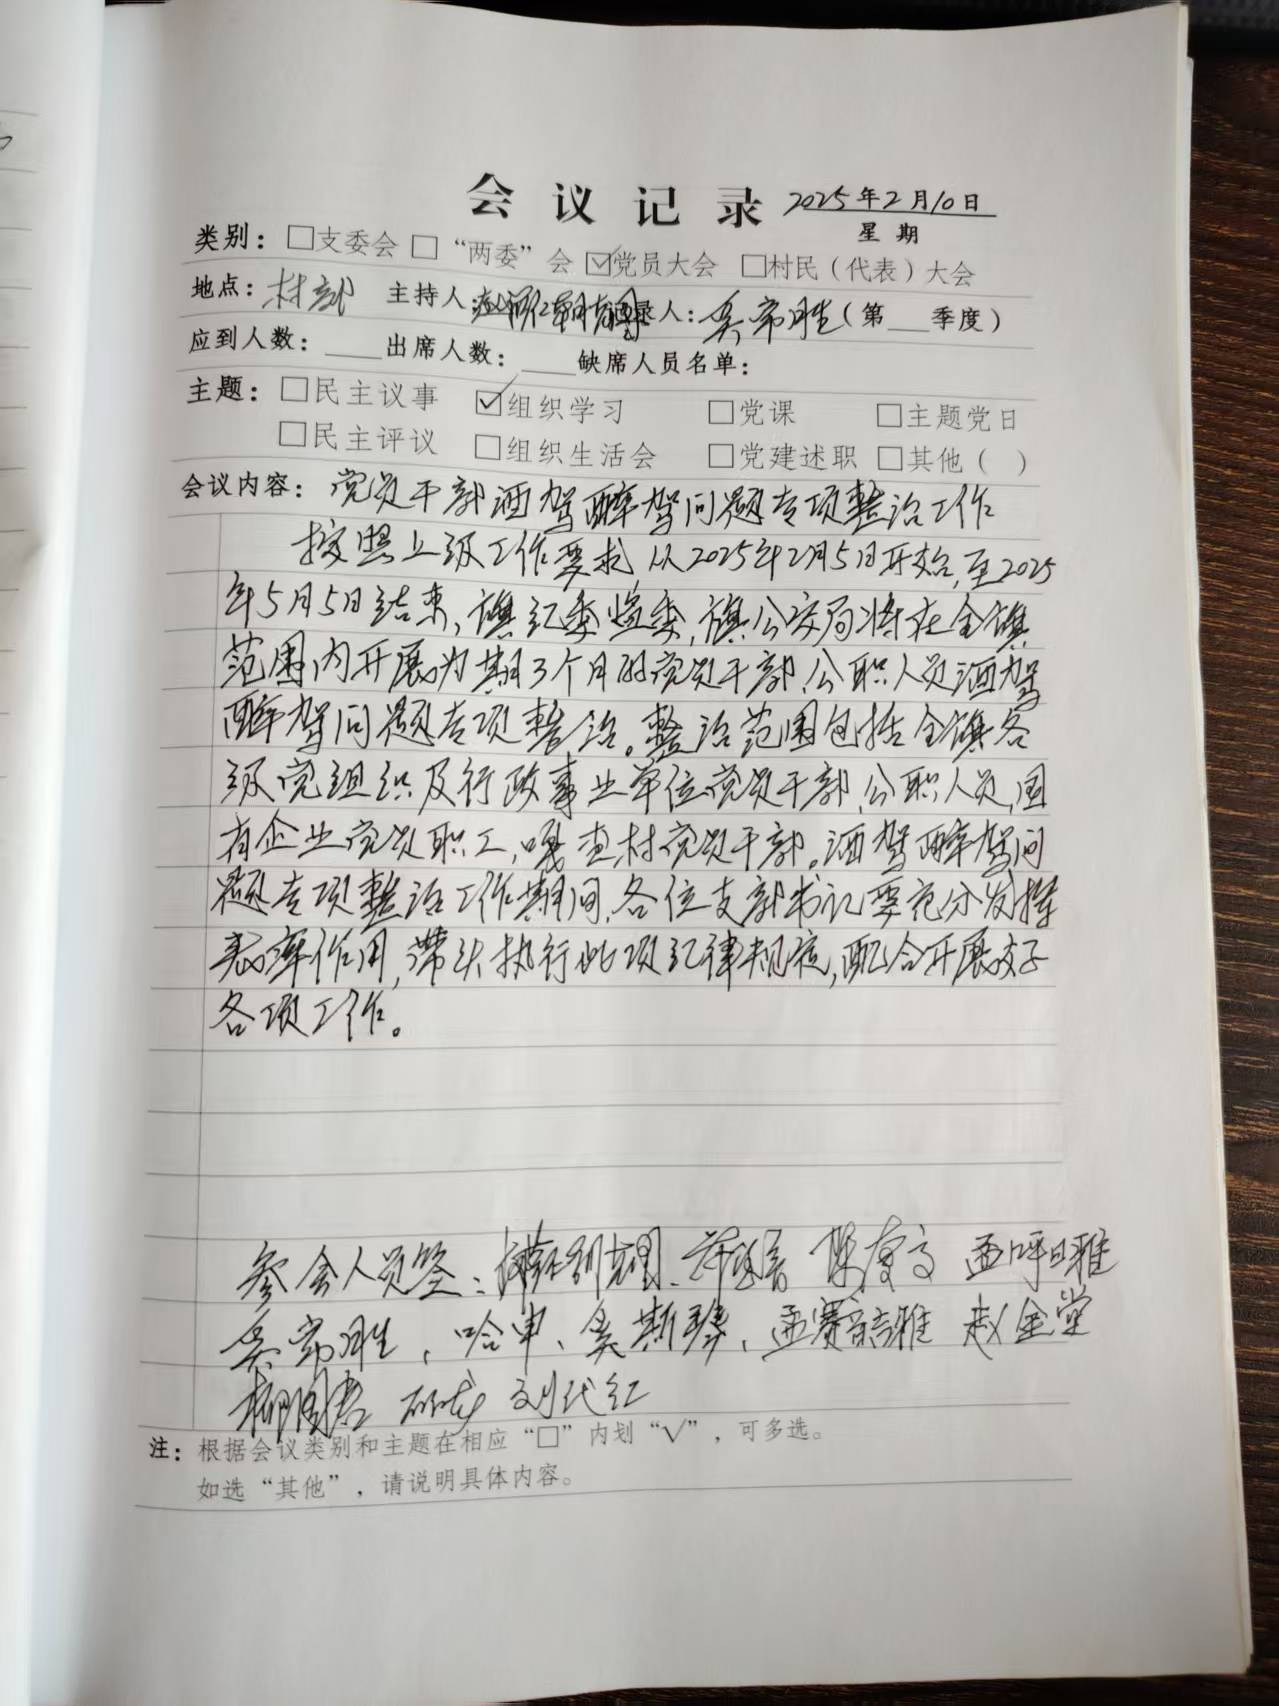 会议记录 2025年2月10日
星期
类别：□支委会 □“两委”会 ☑党员大会 □村民（代表）大会
地点：村部 主持人： 录人：吴常胜（第___季度）
应到人数：____出席人数：____缺席人员名单：
主题：□民主议事 ☑组织学习 □党课 □主题党日
□民主评议 □组织生活会 □党建述职 □其他（ ）
会议内容：党员干部酒驾醉驾问题专项整治工作
按照上级工作要求 从2025年2月5日开始，至2025
年5月5日结束，旗纪委监委，旗公安局将在全旗
范围内开展为期3个月的党员干部、公职人员酒驾
醉驾问题专项整治。整治范围包括全旗各
级党组织及行政事业单位党员干部，公职人员，国
有企业党员职工，嘎查村党员干部。酒驾醉驾问
题专项整治工作期间，各位支部书记要充分发挥
表率作用，带头执行此项纪律规定，配合开展好
各项工作。
参会人员签：
吴常胜，哈申、吴斯琴、孟赛 雅 赵金堂
刘代红
注：根据会议类别和主题在相应“□”内划“√”，可多选。
如选“其他”，请说明具体内容。